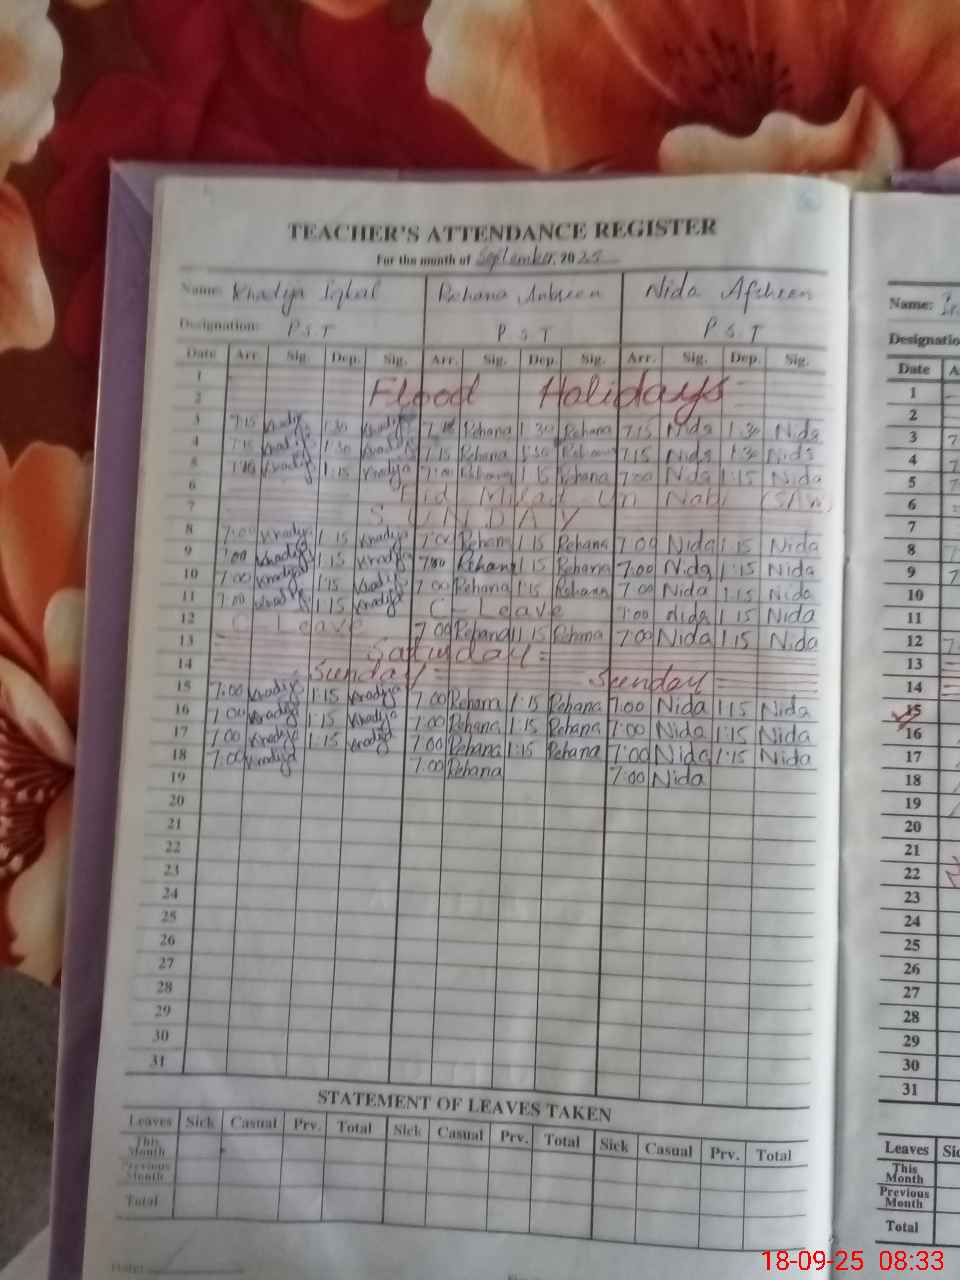 TEACHER'S ATTENDANCE REGISTER
For the month of September 2025
Name: Khadija Iqbal Rehana Ambreen Nida Afsheen
Designation: P.S.T P.S.T P.S.T
Date Arr. Sig. Dep. Sig. Arr. Sig. Dep. Sig. Arr. Sig. Dep. Sig.
1
2 Flood Holidays
3 7:15 Khadija 1:30 Khadija Rehana 1:30 Rehana 7:15 Nida 1:30 Nida
4 7:15 Khadija 1:30 Khadija 7:15 Rehana 1:30 Rehana 7:15 Nida 1:30 Nida
5 Khadija 1:15 Khadija 7:00 Rehana 1:15 Rehana 7:00 Nida 1:15 Nida
6 Eid Milad un Nabi (SAW)
7 SUNDAY
8 7:00 Khadija 1:15 Khadija 7:00 Rehana 1:15 Rehana 7:00 Nida 1:15 Nida
9 7:00 Khadija 1:15 Khadija 7:00 Rehana 1:15 Rehana 7:00 Nida 1:15 Nida
10 7:00 Khadija 1:15 Khadija 7:00 Rehana 1:15 Rehana 7:00 Nida 1:15 Nida
11 7:00 Khadija 1:15 Khadija C-Leave 7:00 Nida 1:15 Nida
12 C Leave 7:00 Rehana 1:15 Rehana 7:00 Nida 1:15 Nida
13 Saturday
14 Sunday Sunday
15 7:00 Khadija 1:15 Khadija 7:00 Rehana 1:15 Rehana 7:00 Nida 1:15 Nida
16 7:00 Khadija 1:15 Khadija 7:00 Rehana 1:15 Rehana 7:00 Nida 1:15 Nida
17 7:00 Khadija 1:15 Khadija 7:00 Rehana 1:15 Rehana 7:00 Nida 1:15 Nida
18 7:00 Khadija 7:00 Rehana 7:00 Nida
19
20
21
22
23
24
25
26
27
28
29
30
31
STATEMENT OF LEAVES TAKEN
Leaves Sick Casual Prv. Total Sick Casual Prv. Total Sick Casual Prv. Total
This Month
Previous Month
Total
Name:
Designation
Date
1
2
3
4
5
6
7
8
9
10
11
12
13
14
15
16
17
18
19
20
21
22
23
24
25
26
27
28
29
30
31
Leaves
This Month
Previous Month
Total
18-09-25 08:33